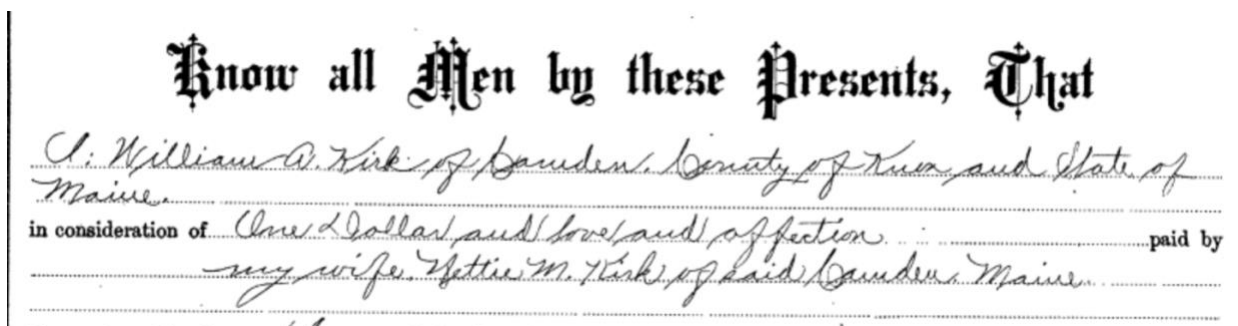 Know all Men by these Presents, That
I, William A. Kirk of Camden, County of Knox and State of
Maine.
in consideration of One Dollar and love and affection paid by
my wife, Nettie M. Kirk of said Camden, Maine.